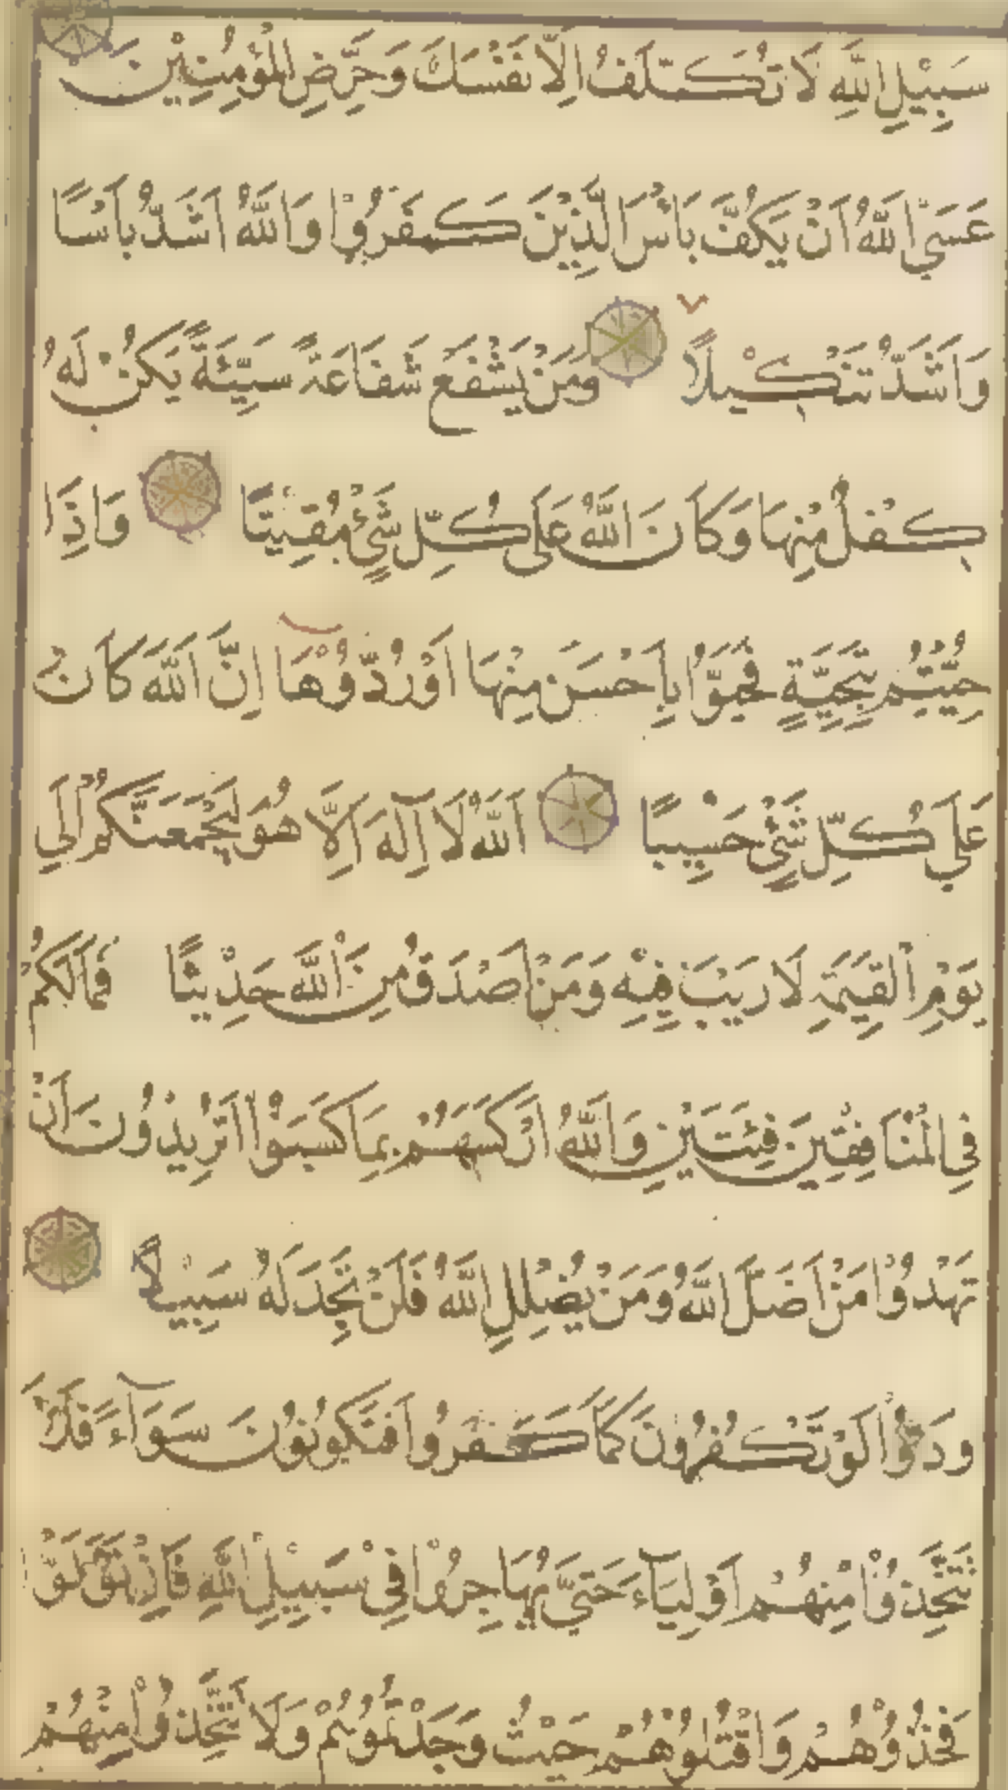 سَبِيْلِ اللّٰهِ لَا تُكَلَّفُ اِلَّا نَفْسَكَ وَحَرِّضِ الْمُؤْمِنِيْنَ
عَسَى اللّٰهُ اَنْ يَكُفَّ بَأْسَ الَّذِيْنَ كَفَرُوْا وَاللّٰهُ اَشَدُّ بَأْسًا
وَاَشَدُّ تَنْكِيْلًا وَمَنْ يَشْفَعْ شَفَاعَةً سَيِّئَةً يَكُنْ لَهُ
كِفْلٌ مِنْهَا وَكَانَ اللّٰهُ عَلٰى كُلِّ شَيْءٍ مُقِيْتًا وَاِذَا
حُيِّيْتُمْ بِتَحِيَّةٍ فَحَيُّوْا بِاَحْسَنَ مِنْهَا اَوْ رُدُّوْهَا اِنَّ اللّٰهَ كَانَ
عَلٰى كُلِّ شَيْءٍ حَسِيبًا اَللّٰهُ لَا اِلٰهَ اِلَّا هُوَ لَيَجْمَعَنَّكُمْ اِلٰى
يَوْمِ الْقِيٰمَةِ لَا رَيْبَ فِيْهِ وَمَنْ اَصْدَقُ مِنَ اللّٰهِ حَدِيْثًا فَمَا لَكُمْ
فِى الْمُنَافِقِيْنَ فِئَتَيْنِ وَاللّٰهُ اَرْكَسَهُمْ بِمَا كَسَبُوْا اَتُرِيْدُوْنَ اَنْ
تَهْدُوْا مَنْ اَضَلَّ اللّٰهُ وَمَنْ يُضْلِلِ اللّٰهُ فَلَنْ تَجِدَ لَهُ سَبِيْلًا
وَدُّوْا لَوْ تَكْفُرُونَ كَمَا كَفَرُوا فَتَكُوْنُوْنَ سَوَآءً فَلَا
تَتَّخِذُوْا مِنْهُمْ اَوْلِيَآءَ حَتّٰى يُهَاجِرُوْا فِىْ سَبِيْلِ اللّٰهِ فَاِنْ تَوَلَّوْا
فَخُذُوْهُمْ وَاقْتُلُوْهُمْ حَيْثُ وَجَدْتُمُوْهُمْ وَلَا تَتَّخِذُوْا مِنْهُمْ